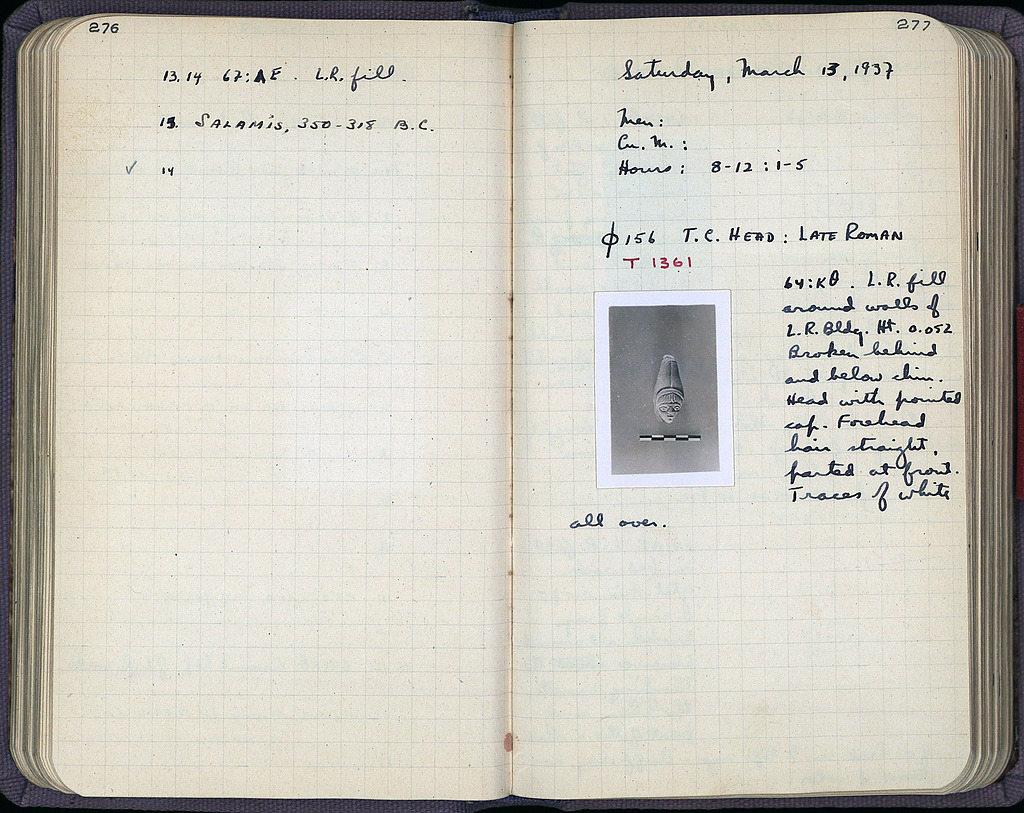 276
13.14 67:ΛΕ. L.R. fill.
13. SALAMIS, 350-318 B.C.
✓ 14
277
Saturday, March 13, 1937
Men:
Cu. M.:
Hours: 8-12 : 1-5
ϕ 156 T.C. HEAD: LATE ROMAN
T 1361
64:ΚΘ. L.R. fill
around walls of
L.R. Bldg. Ht. 0.052
Broken behind
and below chin.
Head with pointed
cap. Forehead
hair straight,
parted at front.
Traces of white
all over.